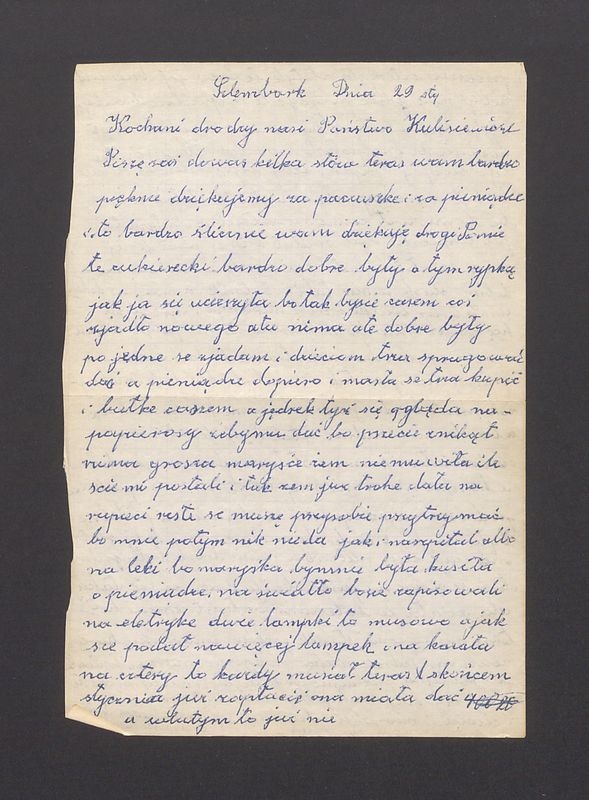 Szlembark Dnia 29 sty
Kochani drodzy nasi Państwo Kulisiewicze
Piszę zaś dowas kilka słów teras wam bardzo
pięknie dziękujemy za paczuszke i za pieniądze
i to bardzo ślicznie wam dziękuję drogi Panie
te cukierecki bardzo dobre były a tym
jak ja się ucieszyła bo tak bysie casem coś
zjadło nowego atu nima ale dobre były
po jedne se zjadam i dzieciom trza sprugować
dać a pieniądze dopiero i masła se trza kupić
i bułke casem a jędrek tyż się oględa na-
papierosy zebymu dać bo przecie znikąt
nima grosza maryśće zem niemuwiła ile
scie mi posłali i tak zem juz troke dała na
resti se musze przysobie przytrzymać
bo mnie potym nik nieda jak i naspital albo
na leki bo maryśka bymnie była kusiła
o pieniadze, na światło bosie zapisowali
na eletryke dwie lampki to musowo a jak
sie podał nawięcej lampek i na
na cztery to kazdy musiał teras skońcem
stycznia juz zapłacić ona miała dać
a wlutym to już nie